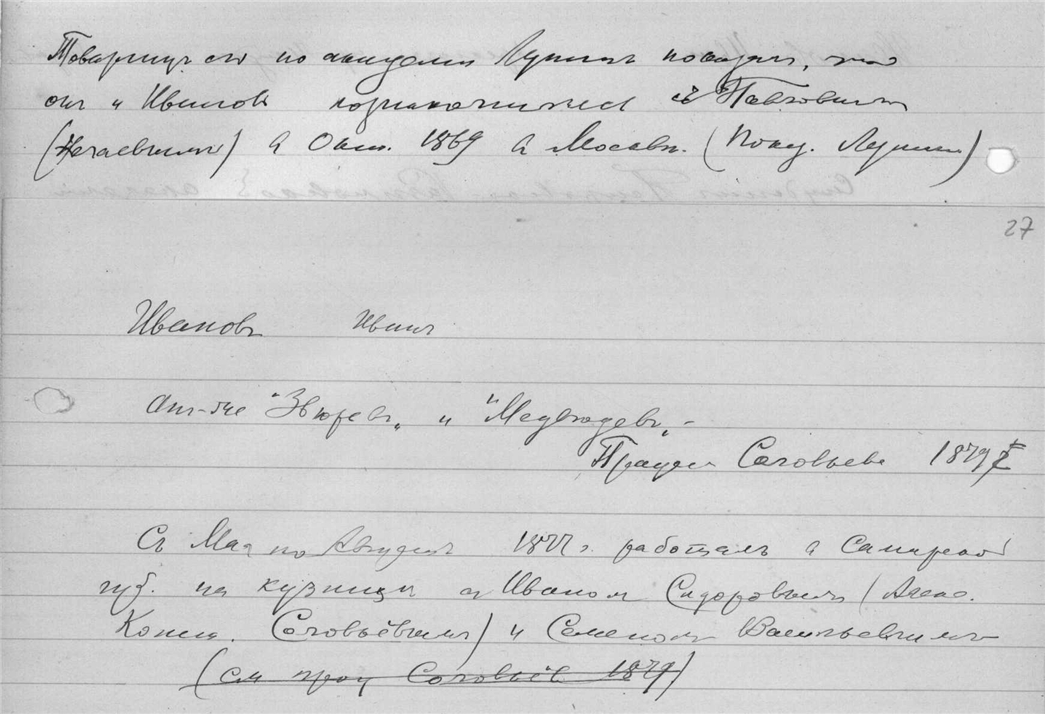 Товарищъ его по академіи Лунинъ показалъ, что
онъ и Ивановъ познакомились съ Павловымъ
(Нечаевымъ) в Окт. 1869 в Москвѣ. (Показ. Лунина)
27
Ивановъ Иванъ
Он-же "Звѣревъ" и "Медвѣдевъ" -
Процессъ Соловьева 1879 г
Съ Мая по Августъ 1877 г. работалъ в Самарской
губ. на кузницѣ с Иваном Сидоровымъ (Алекс.
Конст. Соловьёвымъ) и Семеномъ Васильевымъ
(см проц Соловьёв 1879)